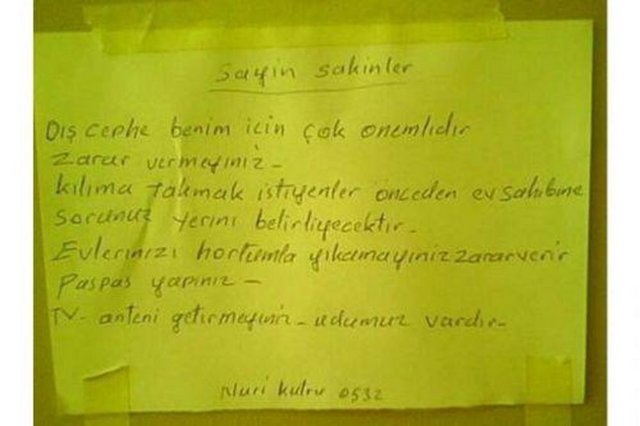 Sayin sakinler
Dış cephe benim icin çok onemlidir
Zarar vermeyiniz -
Kılıma takmak istiyenler önceden ev sahibine
Sorunuz yerini belirliyecektir -
Evlerinizi hortumla yıkamayınız zarar verir
Paspas yapınız -
TV - anteni getirmeyiniz - udumuz vardır -
Nuri kutru 0532